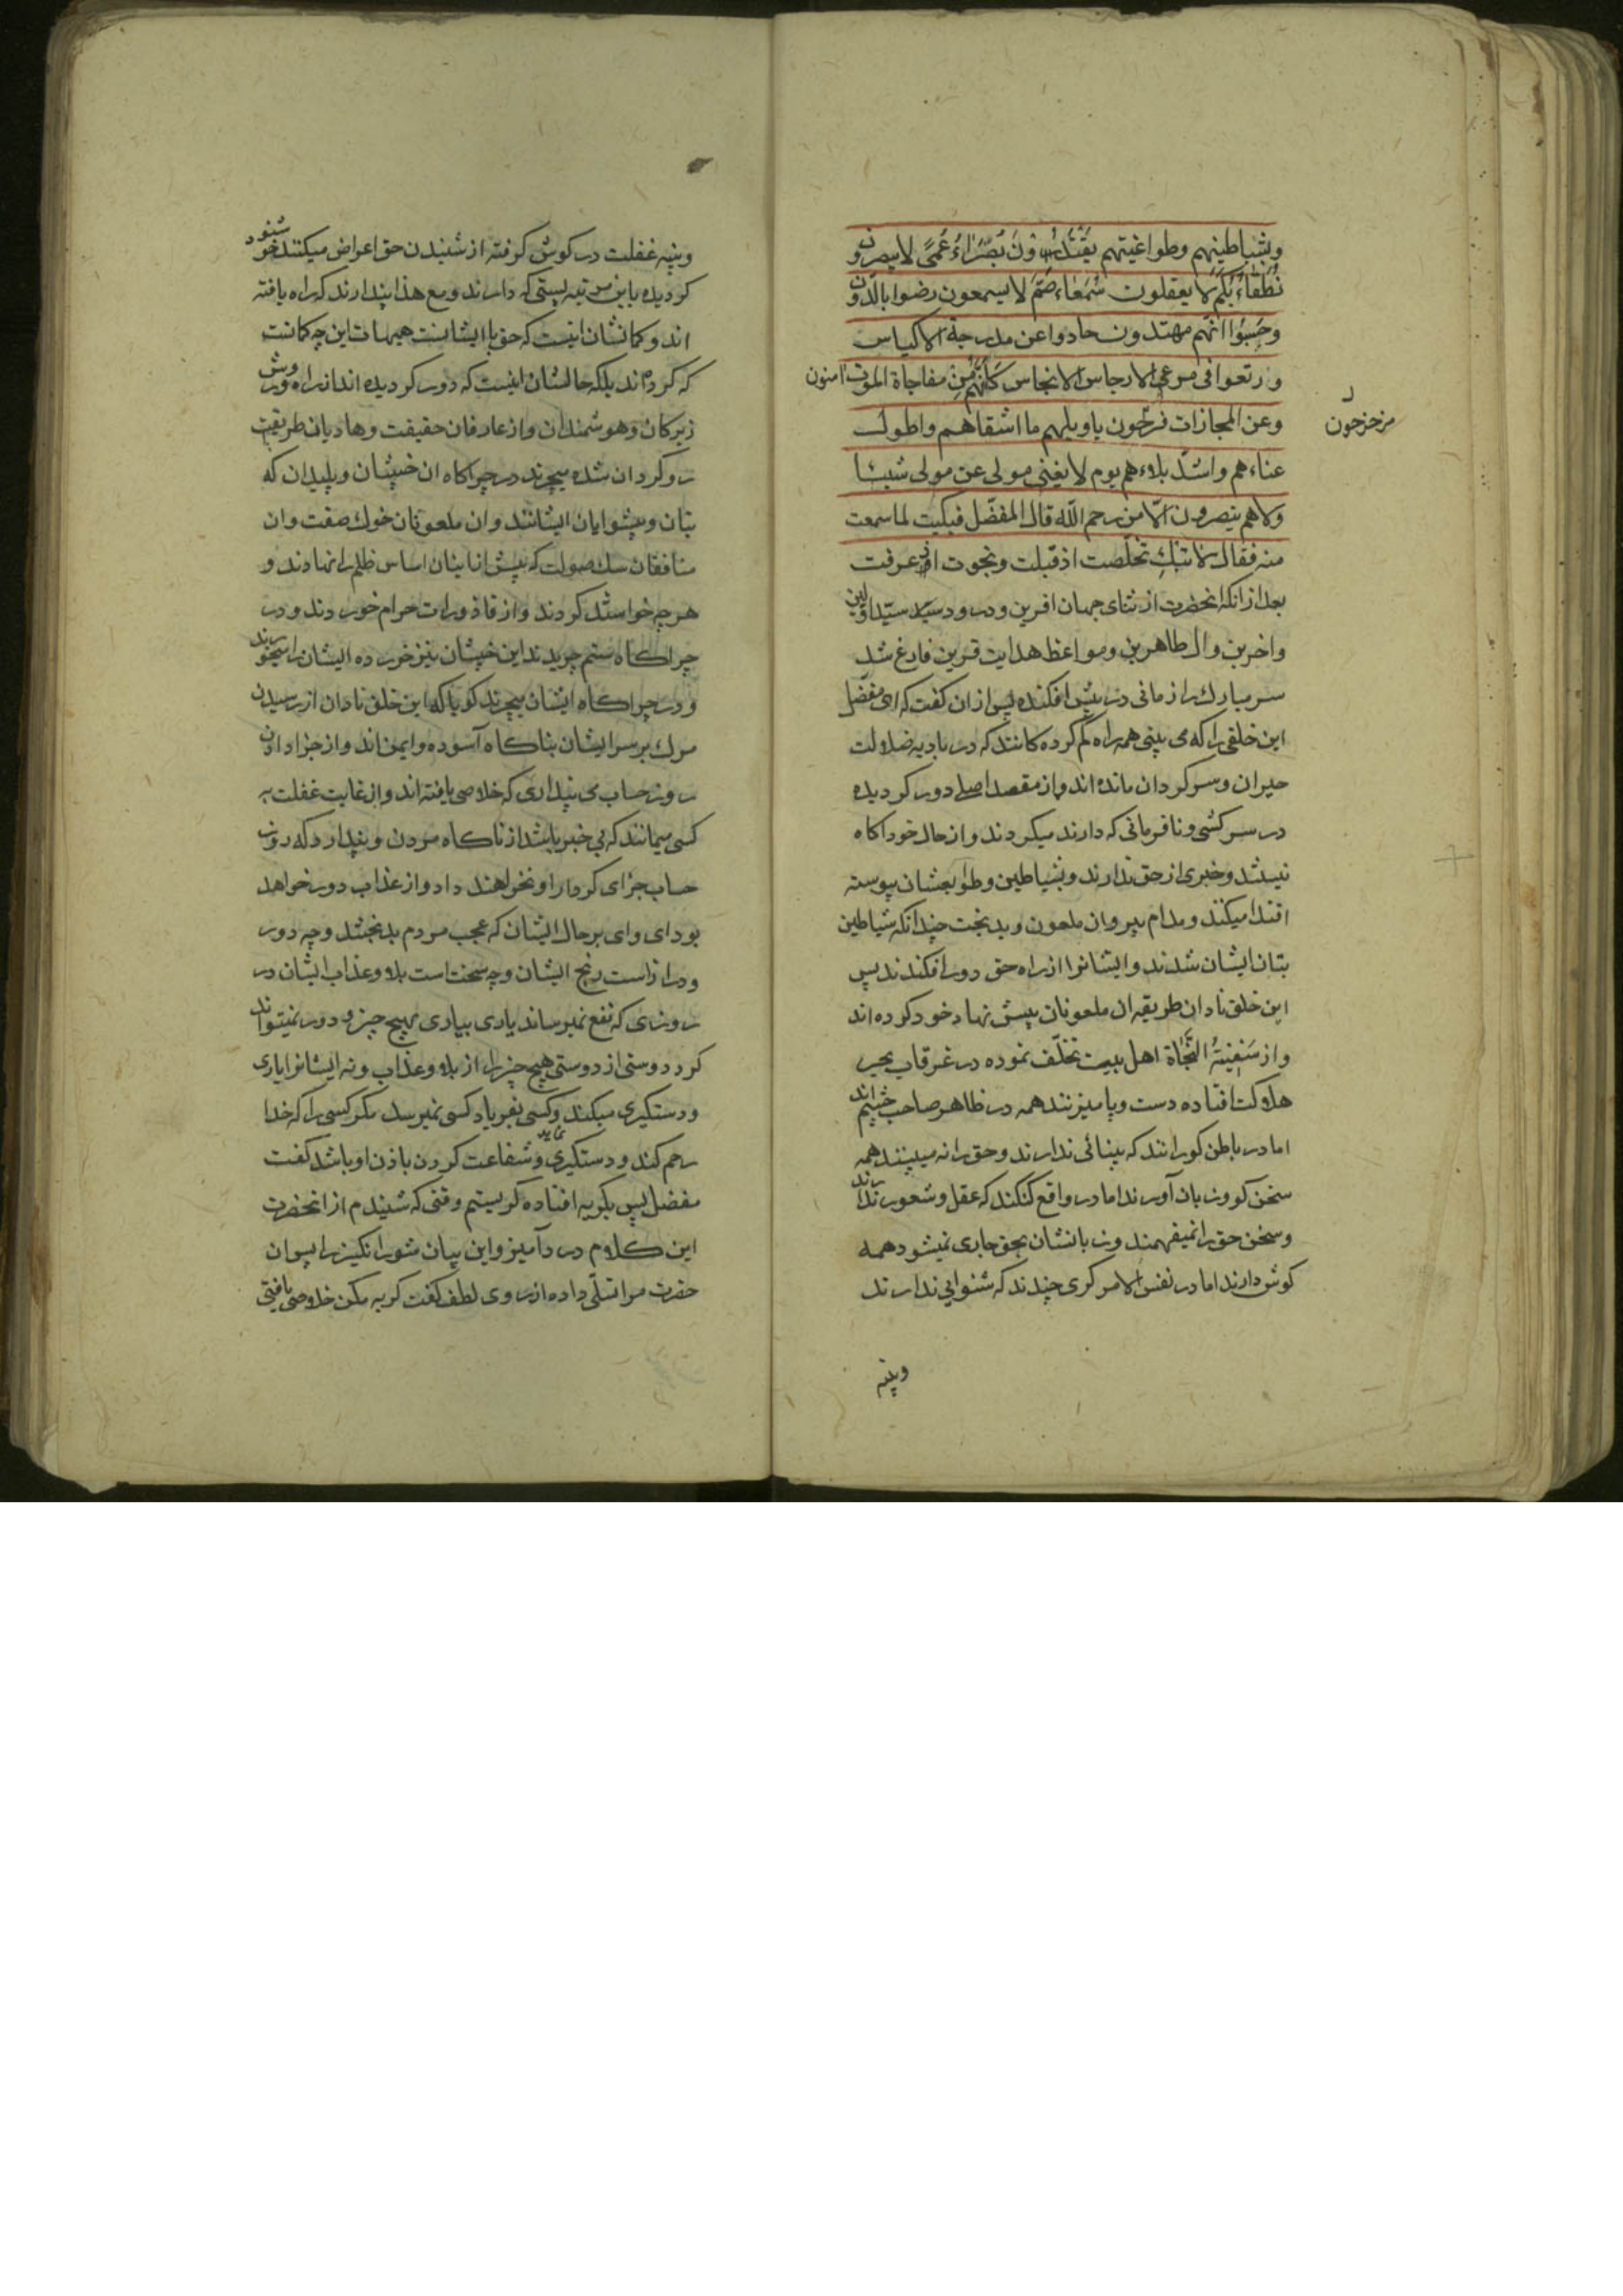 وبشیاطینهم وطواغیتهم یقتدون بُصَراءُ عُمیً لا یبصرون و
نُطَقاءُ بُکمٌ لا یعقلون سُمَعاء صُمٌّ لا یسمعون رضوا بالدّون
وحَسِبُوا انّهم مهتدون حادوا عن مدرجة الاکیاس
ورتعوا فی مرعی الارجاس الانجاس کانّهم مِن مفاجاة الموت امنون
وعن المجازات مزحزحون یاویلهم ما اشقاهم واطول
مزحزحون
عناءهم واشدّ بلاءهم یوم لا یغنی مولی عن مولی شیئا
ولا هم ینصرون الّا من رحم اللّه قال المفضّل فبکیت لما سمعت
منه فقال لا تبکِ تخلّصت اذ قبلت ونجوت اذ عرفت
بعد ازانکه انحضرت از ثنای جهان افرین ودرود سید سیّد اولین
واخرین وال طاهرین ومواعظ هدایت قرین فارغ شد
سر مبارك را زمانی در پیش افکنده پس ازان کفت که ای مفضّل
این خلقی را که می بینی همه راه کم کرده کانند که در بادیه ضلالت
حیران وسرکردان مانده اند واز مقصد اصلی دور کردیده
در سرکشی ونافرمانی که دارند میکردند واز حال خود اکاه
نیستند وخبری از حق ندارند وبشیاطین وطواغیشان پیوسته
اقتدا میکنند ومدام پیروان ملعون وبدبخت چندانکه شیاطین
بتان ایشان شدند وایشانرا از راه حق دور افکندند پس
این خلق نادان طریقه ان ملعونان پیش نهاد خود کرده اند
واز سَفینَةُ النَّجاة اهل بیت تخلّف نموده در غرقاب بحر
هلاکت افتاده دست وپا میزنند همه در ظاهر صاحب چشم اند
اما در باطن کورانند که بینائی ندارند وحق را نه می بینند همه
سخن کو وزبان آورند اما در واقع کنکند که عقل وشعور ندارند
وسخن حق را نمیفهمند وزبانشان بحق جاری نمیشود همه
کوش دارند اما در نفس الامر کری چندند که شنوایی ندارند
وپنبه
وپنبه غفلت در کوش کرفته از شنیدن حق اعراض میکنند خوشنود
کردیده باین مرتبه پستی که دارند ومع هذا پندارند که راه یافته
اند وکمانشان اینست که حق با ایشانست هیهات این چه کمانست
که کرده اند بلکه حالشان اینست که دور کردیده اند از راه وروش
زیرکان وهوشمندان واز عارفان حقیقت وهادیان طریقت
روکردان شده میچرند در چراکاه ان خبیثان وپلیدان که
بتان وپیشوایان ایشانند وان ملعونان خوك صفت وان
منافقان سك صولت که پیش از اینان اساس ظلم را نهادند و
هرچه خواستند کردند واز قاذورات حرام خوردند ودر
چراکاه ستم چریدند این خبیثان نیز خورده ایشان را میخورند
ودر چراکاه ایشان میچرند کویا که این خلق نادان از رسیدن
مرك بر سر ایشان بناکاه آسوده وایمن اند واز جزا دادن
روز حساب می پنداری که خلاصی یافته اند واز غایت غفلت به
کسی میمانند که بی خبر باشد از ناکاه مردن وپندارد که روز
حساب جزای کردار او نخواهند داد واز عذاب دور خواهد
بود ای وای بر حال ایشان که عجب مردم بدبختند وچه دور
ودراز است رنج ایشان وچه سخت است بلا وعذاب ایشان در
روزی که نفع نمیرساند یاری بیاری بهیچ چیز ودور نمیتواند
کرد دوستی از دوستی هیچ چیز را از بلا وعذاب ونه ایشانرا یاری
ودستکیری میکند وکسی بفریاد کسی نمیرسد مکر کسی را که خدا
رحم کند ودستکیری نماید وشفاعت کردن باذن او باشد کفت
مفضل پس بکریه افتاده کریستم وقتی که شنیدم از انحضرت
این کلام درد آمیز واین بیان شور انکیز را پس ان
حضرت مرا تسلّی داده از روی لطف کفت کریه مکن خلاصی یافتی